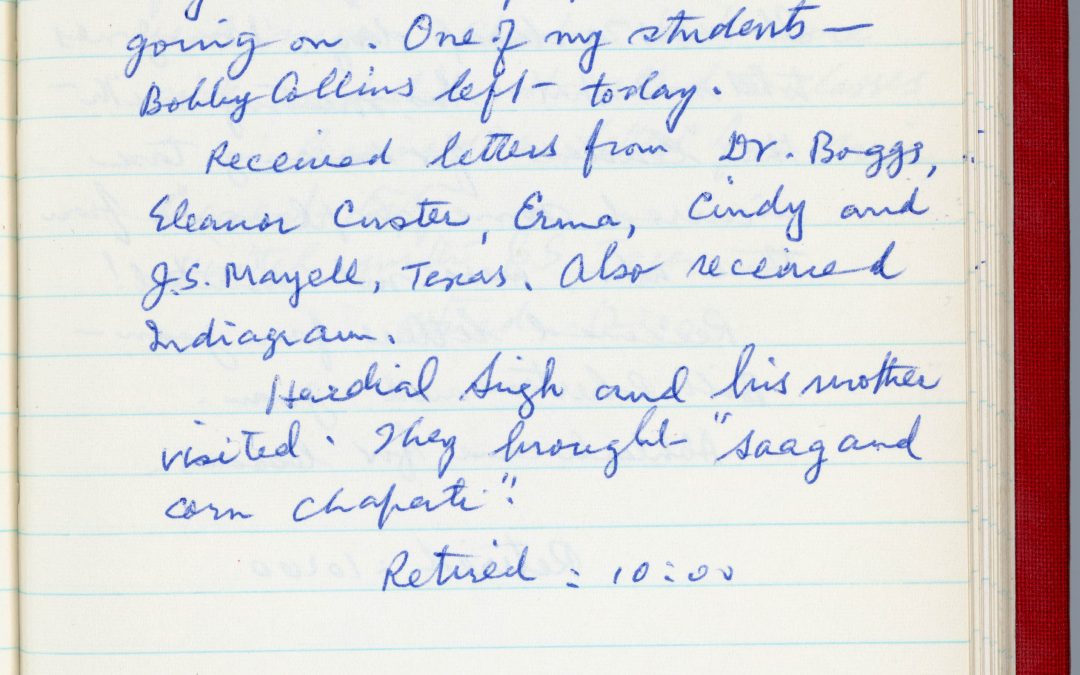 going on. One of my students —
Bobby Collins left today.
Received letters from Dr. Boggs,
Eleanor Custer, Erma, Cindy and
J.S. Mayell, Texas. Also received
Indiagram.
Hardial Singh and his mother
visited. They brought "saag and
corn chapati".
Retired: 10:00